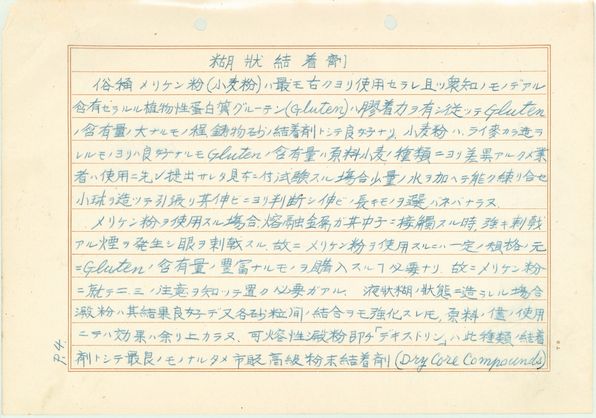 糊狀結着劑
俗稱メリケン粉(小麦粉)ハ最モ古クヨリ使用セラレ且ツ衆知ノモノデアル
含有セラルル植物性蛋白質グルーテン(Gluten)ハ膠着力ヲ有シ從ッテGluten
ノ含有量ノ大ナルモノ程鋳物砂ノ結着剤トシテ良好ナリ、小麦粉ハ、ライ麦カラ造ラ
レルモノヨリハ良好ナルモGlutenノ含有量ハ原料小麦ノ種類ニヨリ差異アルタメ業
者ハ使用ニ先ンジ提出サレタ見本ニ付試験スル場合少量ノ水ヲ加ヘテ能ク練リ合セ
小球ヲ造ッテ引張リ其伸ビニヨリ判断シ伸ビノ長キモノヲ選ハネバナラヌ
メリケン粉ヲ使用スル場合、熔融金属ガ其中子ニ接觸スル時、強キ刺戟
アル煙ヲ発生シ眼ヲ刺戟スル、故ニメリケン粉ヲ使用スルニハ一定ノ規格ノ元
ニGlutenノ含有量ノ豊富ナルモノヲ購入スルヿ必要ナリ、故ニメリケン粉
ニ就テ二、三ノ注意ヲ知ッテ置ク必要ガアル。液狀糊ノ狀態ニ造ラレル場合
澱粉ハ其結果良好デ又各砂粒間ノ結合ヲモ強化スレモ、原料ノ儘ノ使用
ニテハ効果ハ余リ上カラヌ、可熔性澱粉即チ「デキストリン」ハ此種類ノ結着
剤トシテ最良ノモノナルタメ市販高級粉末結着剤(Dry Core Compounds)
P.4.